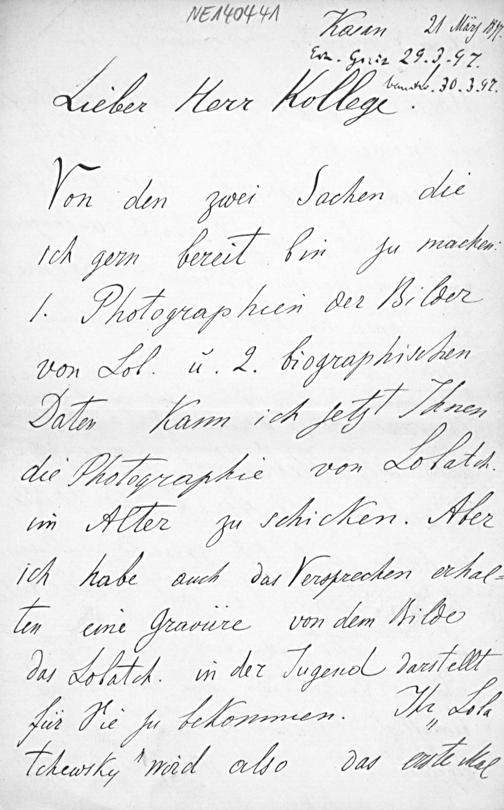 NE140441
Kasan 21 März 97.
29.3.97.
30.3.97.
Lieber Herr Kollege!
Von den zwei Sachen die
ich gern bereit bin zu machen:
1. Photographien der Bilder
von Lob. u. 2. biographischen
Daten kann ich jetzt Ihnen
die Photographie von Lobatch.
im Alter zu schicken. Aber
ich habe auch das Versprechen erhal=
ten eine Graviüre von dem Bilde
das Lobatch. in der Jugend darstellt
für Sie zu bekommen. Ihr „Loba
tchewsky" wird also das erste Mal